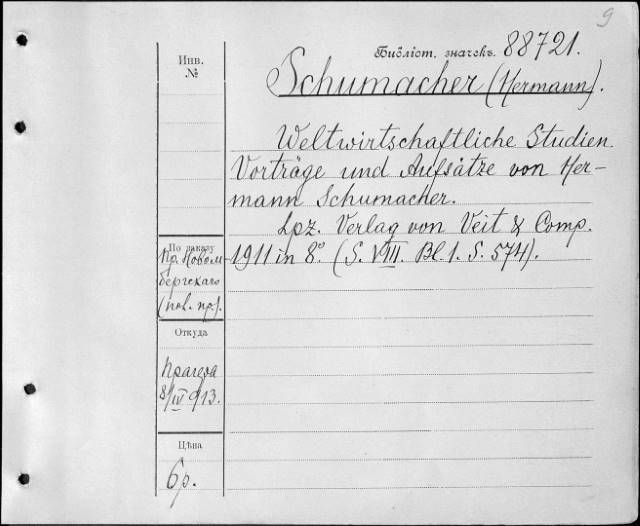 9
Библіот. значекъ. 88721.
Инв.
№
Schumacher (Hermann).
Weltwirtschaftliche Studien.
Vorträge und Aufsätze von Her-
mann Schumacher.
Lpz. Verlag von Veit & Comp.
1911 in 8º. (S. VIII. Bl. 1. S. 574).
По заказу
Пр. Новом-
бергскаго
Откуда
8/IV 913.
Цѣна
6 р.